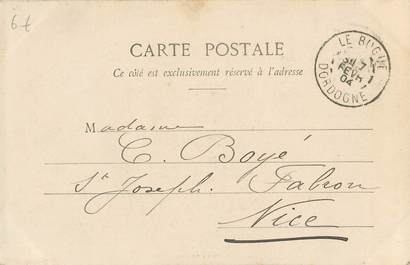 6€
CARTE POSTALE
Ce côté est exclusivement réservé à l'adresse
LE BUGUE
DORDOGNE
Madame
C. Boyé
St Joseph. Fabron
Nice